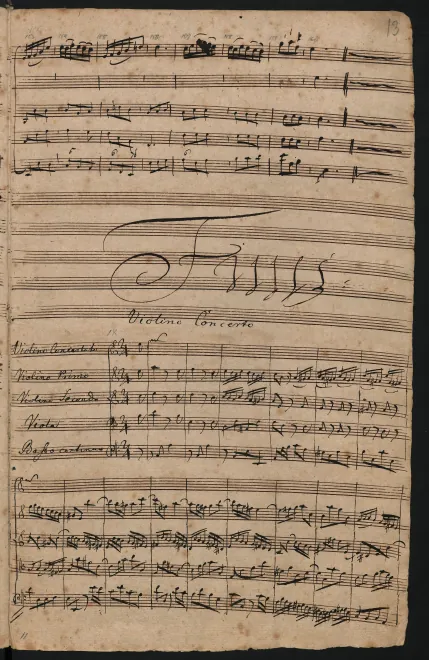 13
Finis
Violino Concerto
Violino Concertato
Violino Primo
Violino Secondo
Viola
Basso continuo